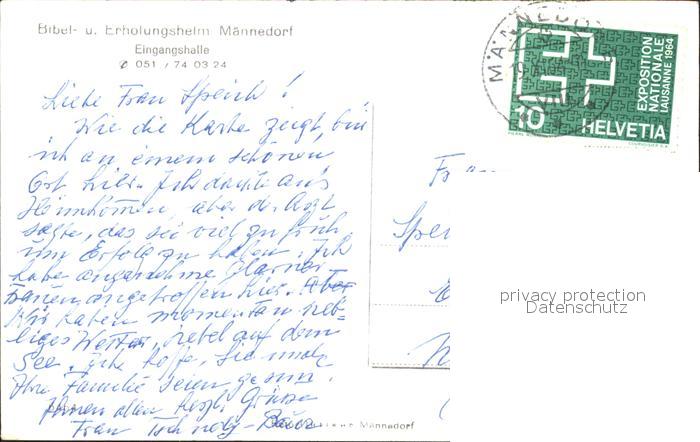 Bibel- u. Erholungsheim Männedorf
Eingangshalle
✆ 051 / 74 03 24
Liebe Frau Speich!
Wie die Karte zeigt, bin
ich an einem schönen
Ort hier. Ich dachte ans
Heimkommen, aber der Arzt
sagte, das sei viel zu früh,
um Erfolg zu haben. Ich
habe angenehme Glarner
Frauen angetroffen hier.
Wir haben momentan neb=
liges Wetter, Nebel auf dem
See. Ich hoffe, Sie und
Ihre Familie seien gesund.
Ihnen allen herzl. Grüsse
Frau
Männedorf
MÄNNEDORF
EXPOSITION
NATIONALE
LAUSANNE 1964
10 HELVETIA
COURVOISIER S.A.
Fr
Spei
privacy protection
Datenschutz